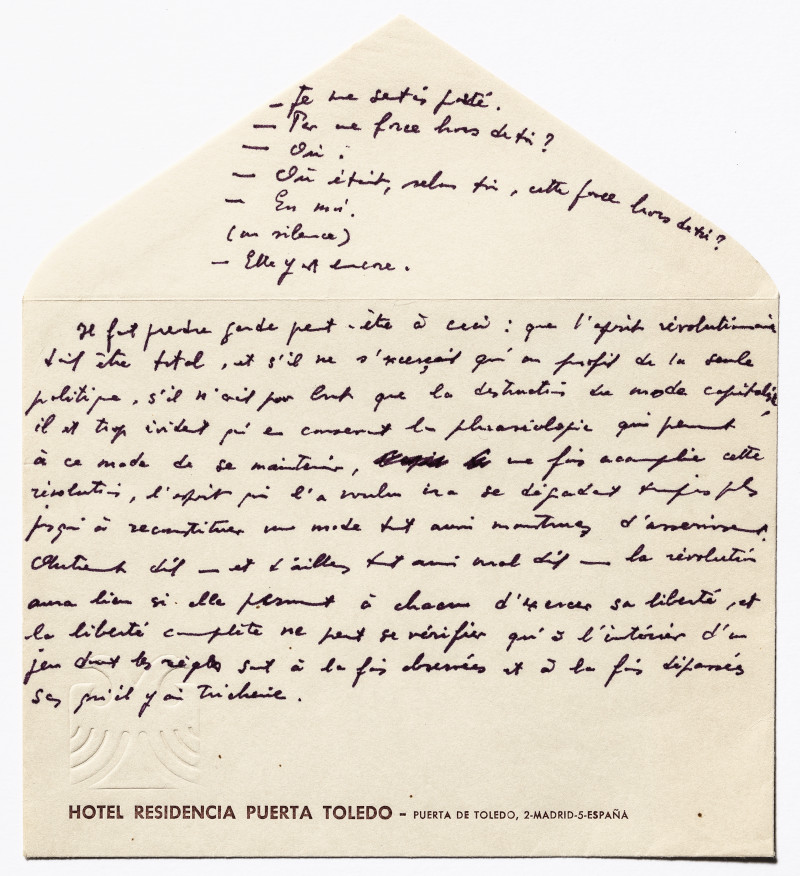 — Je me sentis porté.
— Par une force hors de toi ?
— Oui.
— Où était, selon toi, cette force hors de toi ?
— En moi.
(un silence)
— Elle y est encore.
Il faut prendre garde peut-être à ceci : que l'esprit révolutionnaire
doit être total, et s'il ne s'exerçait qu'au profit de la seule
politique, s'il n'avait pour but que la destruction du mode capitaliste,
il est trop évident qu'en conservant la phraséologie qui permet
à ce mode de se maintenir, une fois accomplie cette
révolution, l'esprit qui l'a voulue ira se dégradant
jusqu'à reconstituer un mode tout aussi monstrueux d'asservissement.
Autrement dit — et d'ailleurs tout aussi mal dit — la révolution
aura lieu si elle permet à chacun d'exercer sa liberté, et
la liberté complète ne peut se vérifier qu'à l'intérieur d'un
jeu dont les règles sont à la fois observées et à la fois dépassées
sans qu'il y ait tricherie.
HOTEL RESIDENCIA PUERTA TOLEDO - PUERTA DE TOLEDO, 2-MADRID-5-ESPAÑA